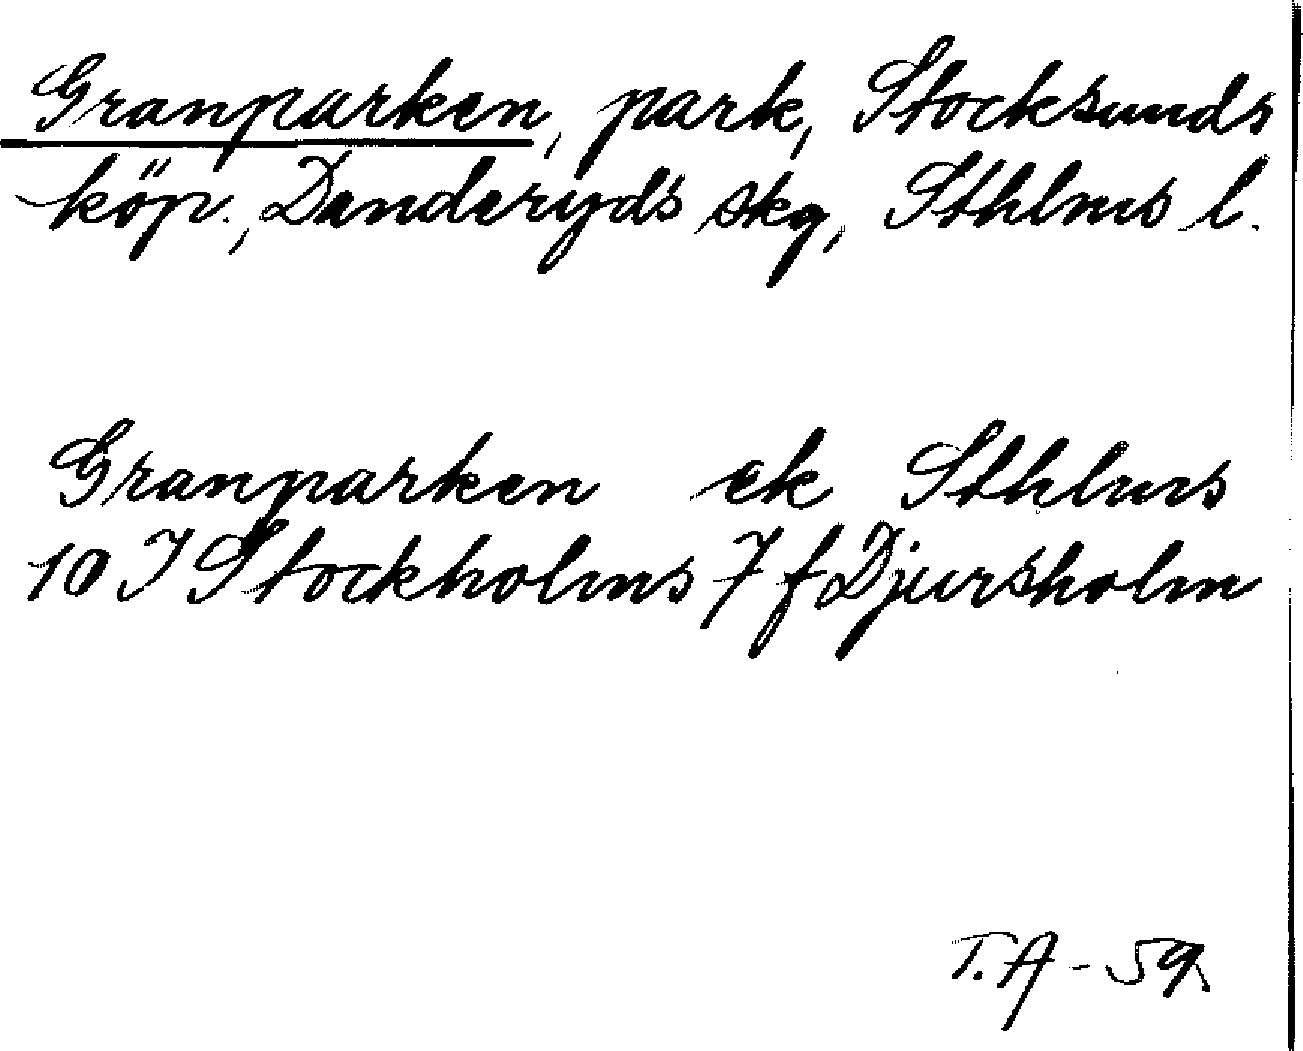 Granparken, park, Stocksunds
köp., Danderyds skg, Sthlms l.
Granparken ek Sthlms
10 I Stockholms 7 f Djursholm
T.A - 59